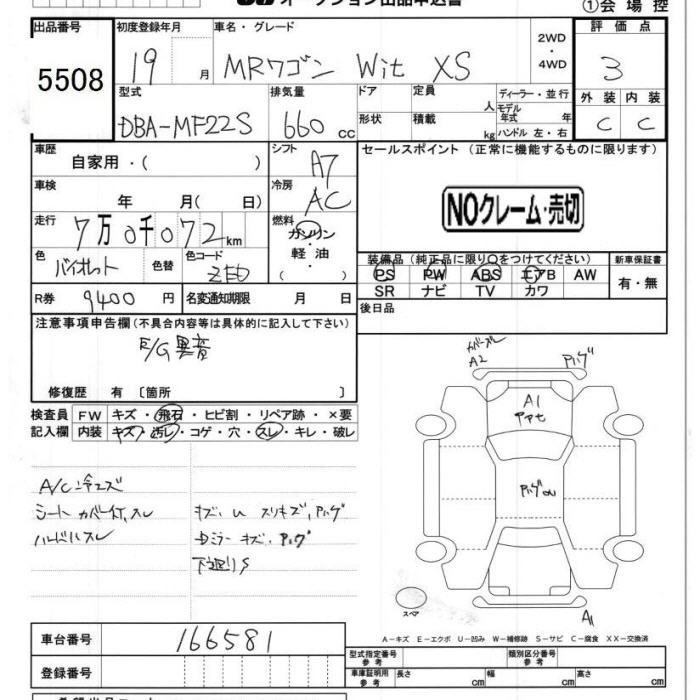 オークション出品申込書
①会場控
出品番号 初度登録年月 車名・グレード 2WD・4WD 評価点
5508 19 月 MRワゴン Wit XS 3
型式 排気量 ドア 定員 人 ディーラー・並行 外装 内装
DBA-MF22S 660 cc 形状 積載 kg モデル年式 年 ハンドル 左・右 C C
車歴 自家用・( ) シフト A7 セールスポイント(正常に機能するものに限ります)
車検 年 月( 日) 冷房 AC
NOクレーム・売切
走行 7万0千072km 燃料 ガソリン・軽油・( )
色 バイオレット 色替 色カラーコード
装備品(純正品に限り○をつけてください) 新車保証書
PS PW ABS エアB AW 有・無
SR ナビ TV カワ
R券 9400 円 名変通知期限 月 日 後日品
注意事項申告欄(不具合内容等は具体的に記入して下さい)
E/G異音
修復歴 有 〔箇所 〕
検査員 FW キズ・飛石・ヒビ割・リペア跡・×要
記入欄 内装 キズ・汚レ・コゲ・穴・スレ・キレ・破レ
A/C冷エズ
シートカバー付、スレ
ハンドルスレ
キズ、U スリキズ、ハゲ
ミラーキズ、ハゲ
下廻りS
A2
ハゲ
A1
スペア
A1
A-キズ E-エクボ U-凹み W-補修跡 S-サビ C-腐食 XX-交換済
車台番号 166581 型式指定番号 参考 類別区分番号 参考
登録番号 車庫証明用 参考 長さ cm 幅 cm 高さ cm